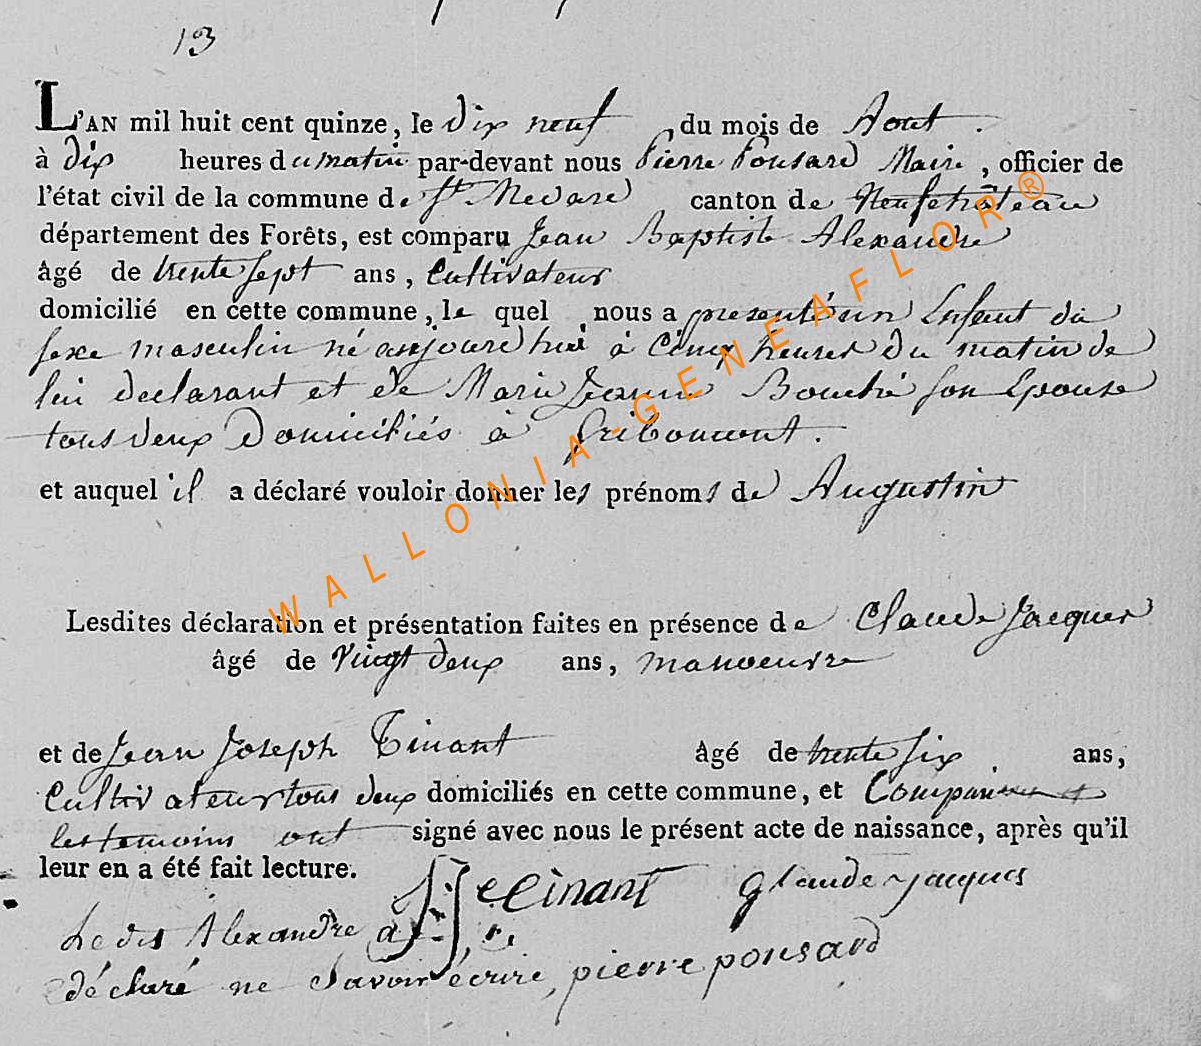 13
L'AN mil huit cent quinze, le dix neuf du mois de Aout.
à dix heures du matin par-devant nous Pierre Ponsard Maire, officier de
l'état civil de la commune de St Medard canton de Neufchâteau
département des Forêts, est comparu Jean Baptiste Alexandre
âgé de trente sept ans, Cultivateur
domicilié en cette commune, le quel nous a presenté un Enfant du
sexe masculin né aujourd'hui à Cinq heures du matin de
lui declarant et de Marie Jeanne Bouché son Epouse
tous deux Domiciliés à Gribomont.
et auquel il a déclaré vouloir donner les prénoms de Augustin
Lesdites déclaration et présentation faites en présence de Claude Jacques
âgé de vingt deux ans, manoeuvre
et de Jean Joseph Tinant âgé de trente six ans,
Cultivateur tous deux domiciliés en cette commune, et
les temoins ont signé avec nous le présent acte de naissance, après qu'il
leur en a été fait lecture.
J J Tinant glaude jacques
Ledit Alexandre a
déclaré ne Savoir écrire, pierre ponsard
WALLONIA-GENEAFLOR®